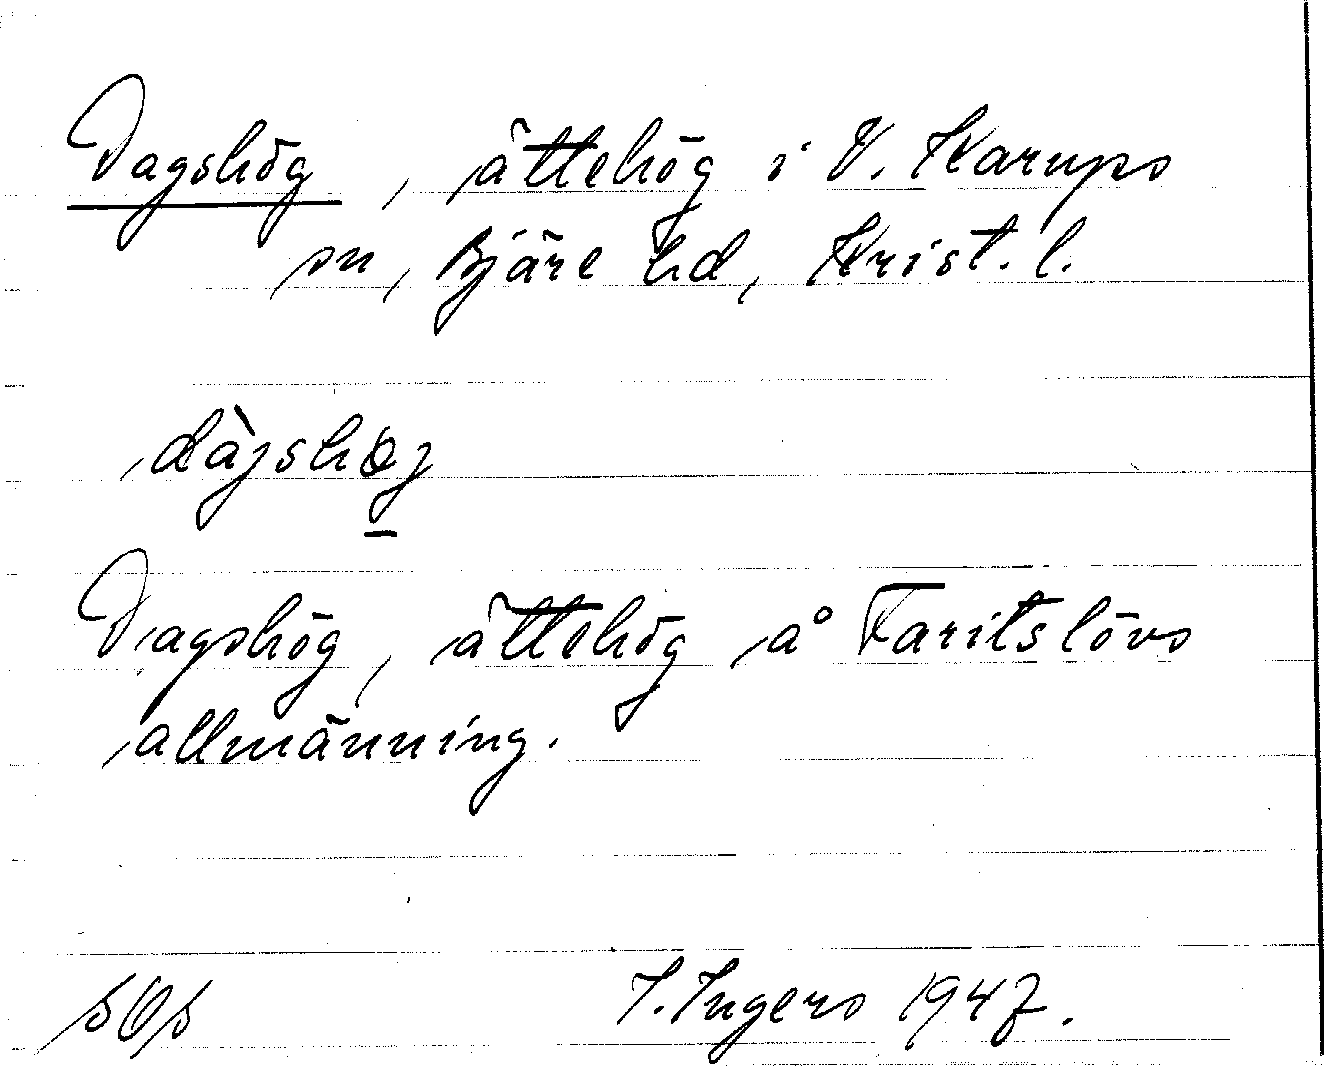 Dagshög, ättehög i V. Karups
sn, Bjäre hd, Krist. l.
dàjshøj
Dagshög, ättehög å Faritslövs
allmänning.
I. Ingers 1947.